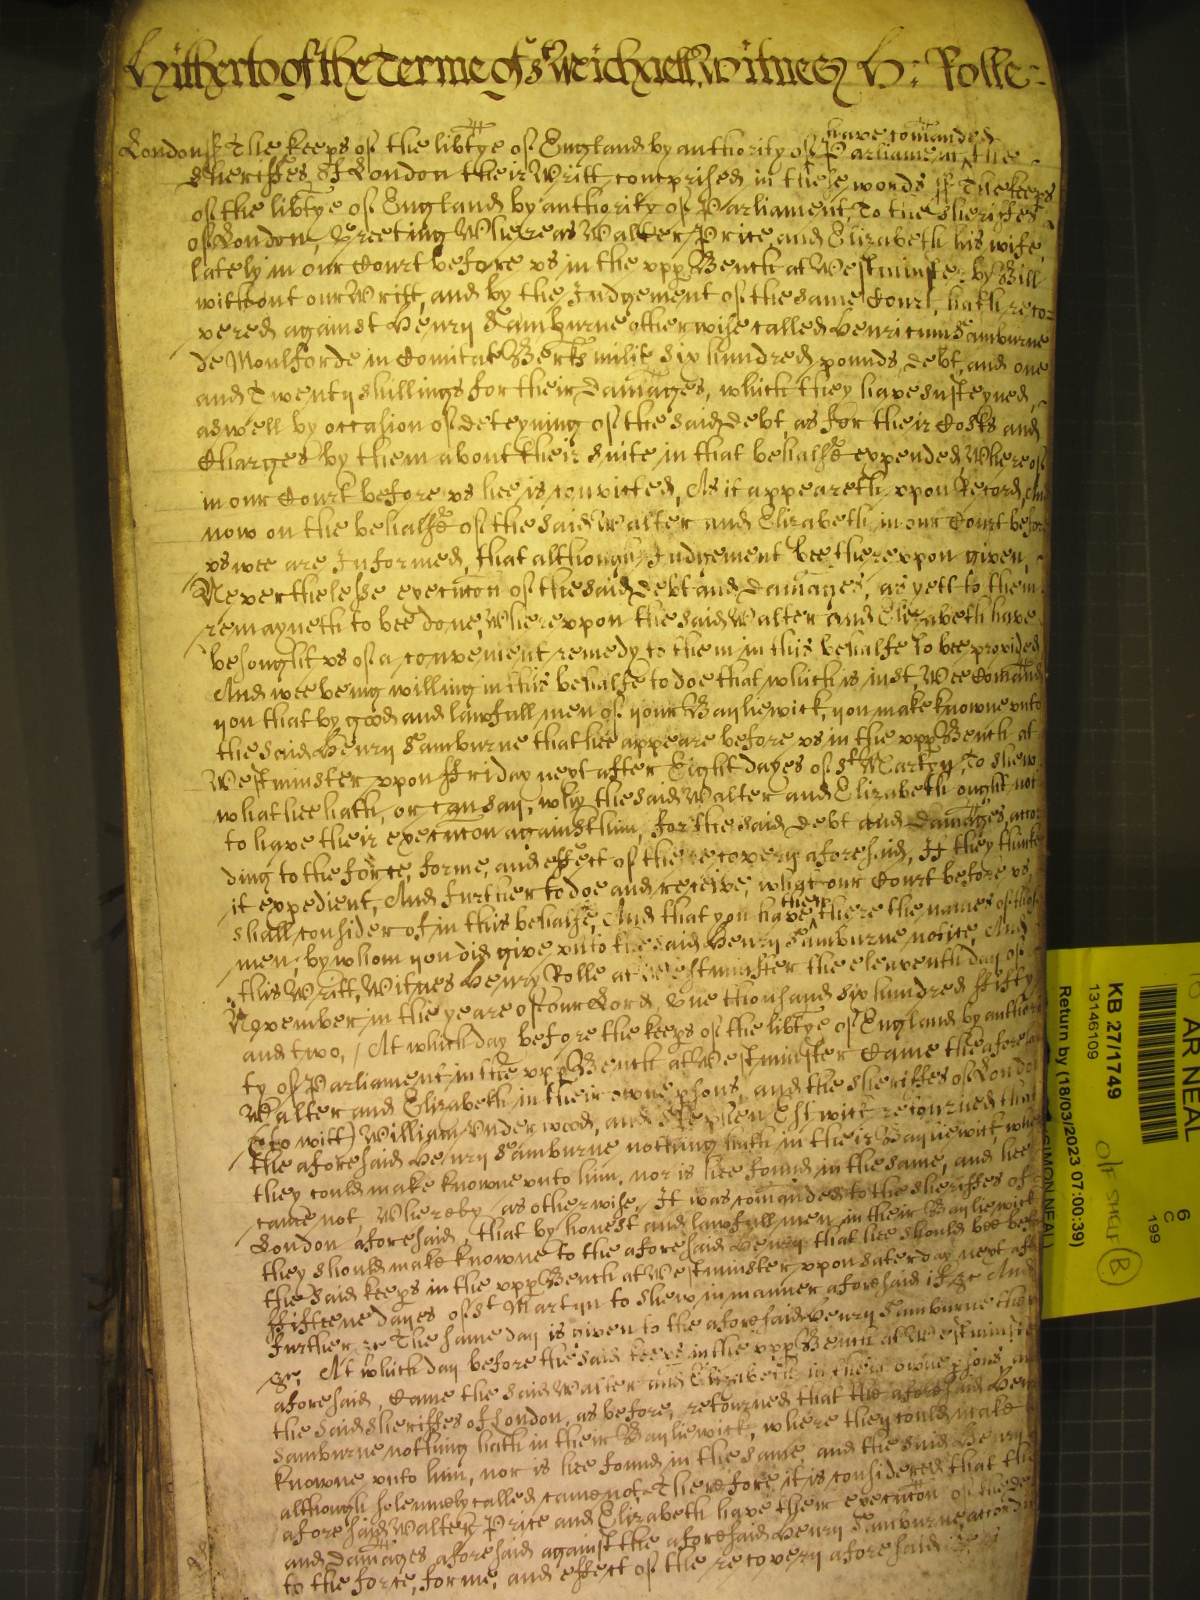 Hitherto of the Terme of St Michaell Witnes H: Rolle
have comanded
London ss The keeps of the libtye of England by authority of Parliament the
Sheriffes of London their Writt comprised in these words ss The keeps
of the libtye of England by authority of Parliament, To the Sheriffes
of London, Greeting Whereas Walter Price and Elizabeth his wife,
lately in our Court before us in the vpp Bench at Westminster by Bill
without our Writt, and by the Judgement of the same Court, hath reco-
vered against Henry Samburne otherwise called Henricum Samburne
de Moulforde in Comitat Berks milit six hundred pounds, debt, and one
and Twenty shillings for their damages, which they have susteyned,
aswell by occasion of deteyning of the said debt, as for their Costs and
Charges by them about their suite in that behalfe expended, Whereof
in our Court before vs hee is convicted, As it appeareth vpon Record, And
now on the behalfe of the said Walter and Elizabeth in our Court before
vs wee are Informed, that although Judgement bee therevpon given,
Neverthelesse execucon of the said debt and damages, as yett to them
remayneth to bee done, Wherevpon the said Walter and Elizabeth have
besought vs of a convenient remedy to them in this behalfe to bee provided
And wee being willing in this behalfe to doe that which is iust Wee Comand
you that by good and lawfull men of your Bayliewick, you make knowne vnto
the said Henry Samburne that hee appeare before vs in the vpp Bench at
Westminster vpon ffriday next after Eight dayes of St Martyn, To shew
what hee hath, or can say, why the said Walter and Elizabeth ought not
to have their execucon against him, for the said debt and damages, accor
ding to the force, forme, and effect of the recovery aforesaid, If they thinke
it expedient, And further to doe and receive, what our Court before vs,
shall consider of in this behalfe, And that you have there the names of those
then
men, by whom you did give vnto the said Henry Samburne notice, And
this Writt, Witnes Henry Rolle at Westminster the eleaventh day of
November in the yeare of our Lord, One thousand six hundred ffifty
and two, / At which day before the keeps of the libtye of England by authori
ty of Parliament in the vpp Bench at Westminster Came the aforesaid
Walter and Elizabeth in their owne psons, and the Sheriffes of London
(to witt) William Underwood, and Stephen Estwick retourned that
the aforesaid Henry Samburne nothing hath in their Bayliewick, where
they could make knowne vnto him, nor is hee found in the same, and hee
came not, Whereby as otherwise, It was comanded to the Sheriffes of
London aforesaid, that by honest and lawfull men in their Bayliewick
they should make knowne to the aforesaid Henry that hee should bee before
the said keeps in the vpp Bench at Westminster vpon Saterday next after
ffifteene dayes of St Martyn to shew in manner aforesaid if &c And
further &c The same day is given to the aforesaid Henry Samburne there
&c, At which day before the said keeps in the vpp Bench at Westminster
aforesaid, Came the said Walter and Elizabeth in their owne psons, and
the said Sheriffes of London, as before, retourned that the aforesaid Henry
Samburne nothing hath in their Bayliewick, where they could make
knowne vnto him, nor is hee found in the same, and the said Henry
although solemnely called came not, Therefore it is considered that the
aforesaid Walter Price and Elizabeth have their execucon of the debt
and damages aforesaid against the aforesaid Henry Samburne, according
to the force, forme, and effect of the recovery aforesaid
AR NEAL
KB 27/1749
13146109
Return by (18/03/2023 07:00:39)
(SIMON NEAL)
O/S SHELF B
6
C
199